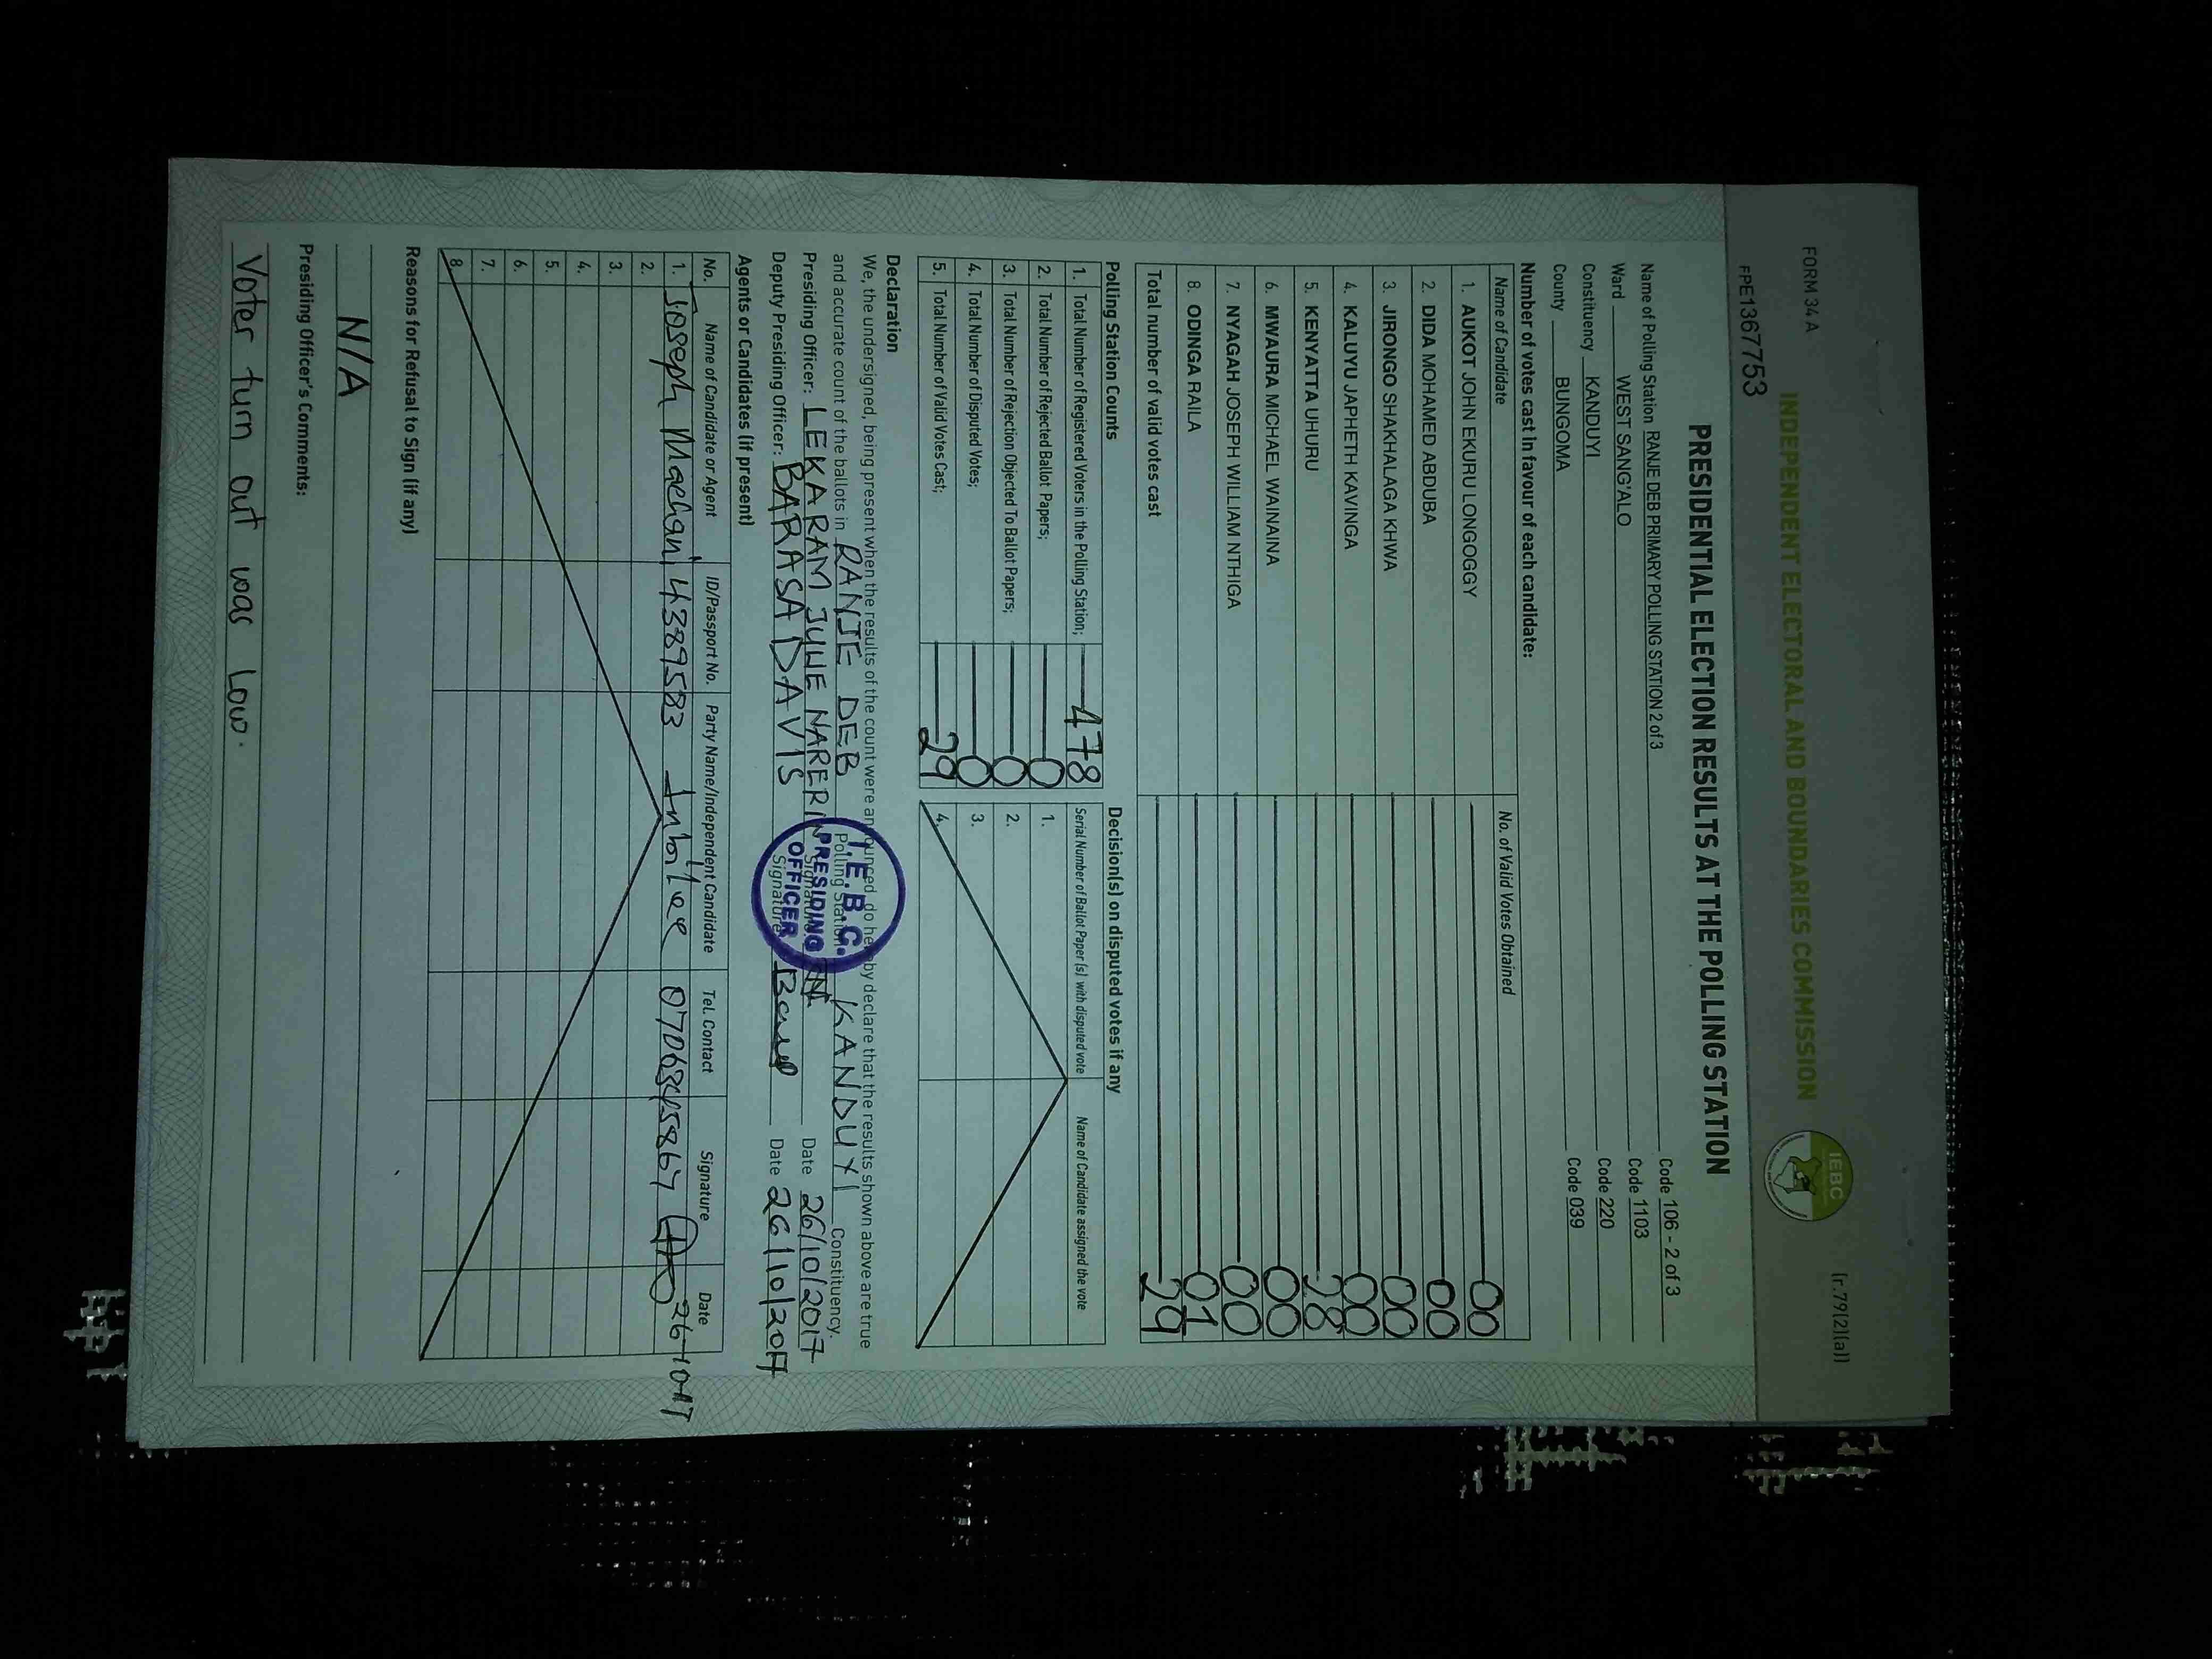 FORM 34 A
(r.79(2)(a))
INDEPENDENT ELECTORAL AND BOUNDARIES COMMISSION
IEBC
FPE1367753
PRESIDENTIAL ELECTION RESULTS AT THE POLLING STATION
Name of Polling Station RANJE DEB PRIMARY POLLING STATION 2 of 3 Code 106 - 2 of 3
Ward WEST SANG'ALO Code 1103
Constituency KANDUYI Code 220
County BUNGOMA Code 039
Number of votes cast in favour of each candidate:
Name of Candidate No. of Valid Votes Obtained
1. AUKOT JOHN EKURU LONGOGGY 00
2. DIDA MOHAMED ABDUBA 00
3. JIRONGO SHAKHALAGA KHWA 00
4. KALUYU JAPHETH KAVINGA 00
5. KENYATTA UHURU 28
6. MWAURA MICHAEL WAINAINA 00
7. NYAGAH JOSEPH WILLIAM NTHIGA 00
8. ODINGA RAILA 01
Total number of valid votes cast 29
Polling Station Counts
1. Total Number of Registered Voters in the Polling Station; 478
2. Total Number of Rejected Ballot Papers; 0
3. Total Number of Rejection Objected To Ballot Papers; 0
4. Total Number of Disputed Votes; 0
5. Total Number of Valid Votes Cast; 29
Decision(s) on disputed votes if any
Serial Number of Ballot Paper (s) with disputed vote Name of Candidate assigned the vote
1.
2.
3.
4.
Declaration
We, the undersigned, being present when the results of the count were announced, do hereby declare that the results shown above are true
and accurate count of the ballots in RANJE DEB Polling Station KANDUYI Constituency.
Presiding Officer: LEKARAM JUNE NARERIN Signature Date 26/10/2017
Deputy Presiding Officer: BARASA DAVIS Signature Date 26/10/2017
I.E.B.C.
PRESIDING
OFFICER
Agents or Candidates (if present)
No. Name of Candidate or Agent ID/Passport No. Party Name/Independent Candidate Tel. Contact Signature Date
1. Joseph 4389583 26-10-17
2.
3.
4.
5.
6.
7.
8.
Reasons for Refusal to Sign (if any)
N/A
Presiding Officer's Comments:
Voter turn out was Low.